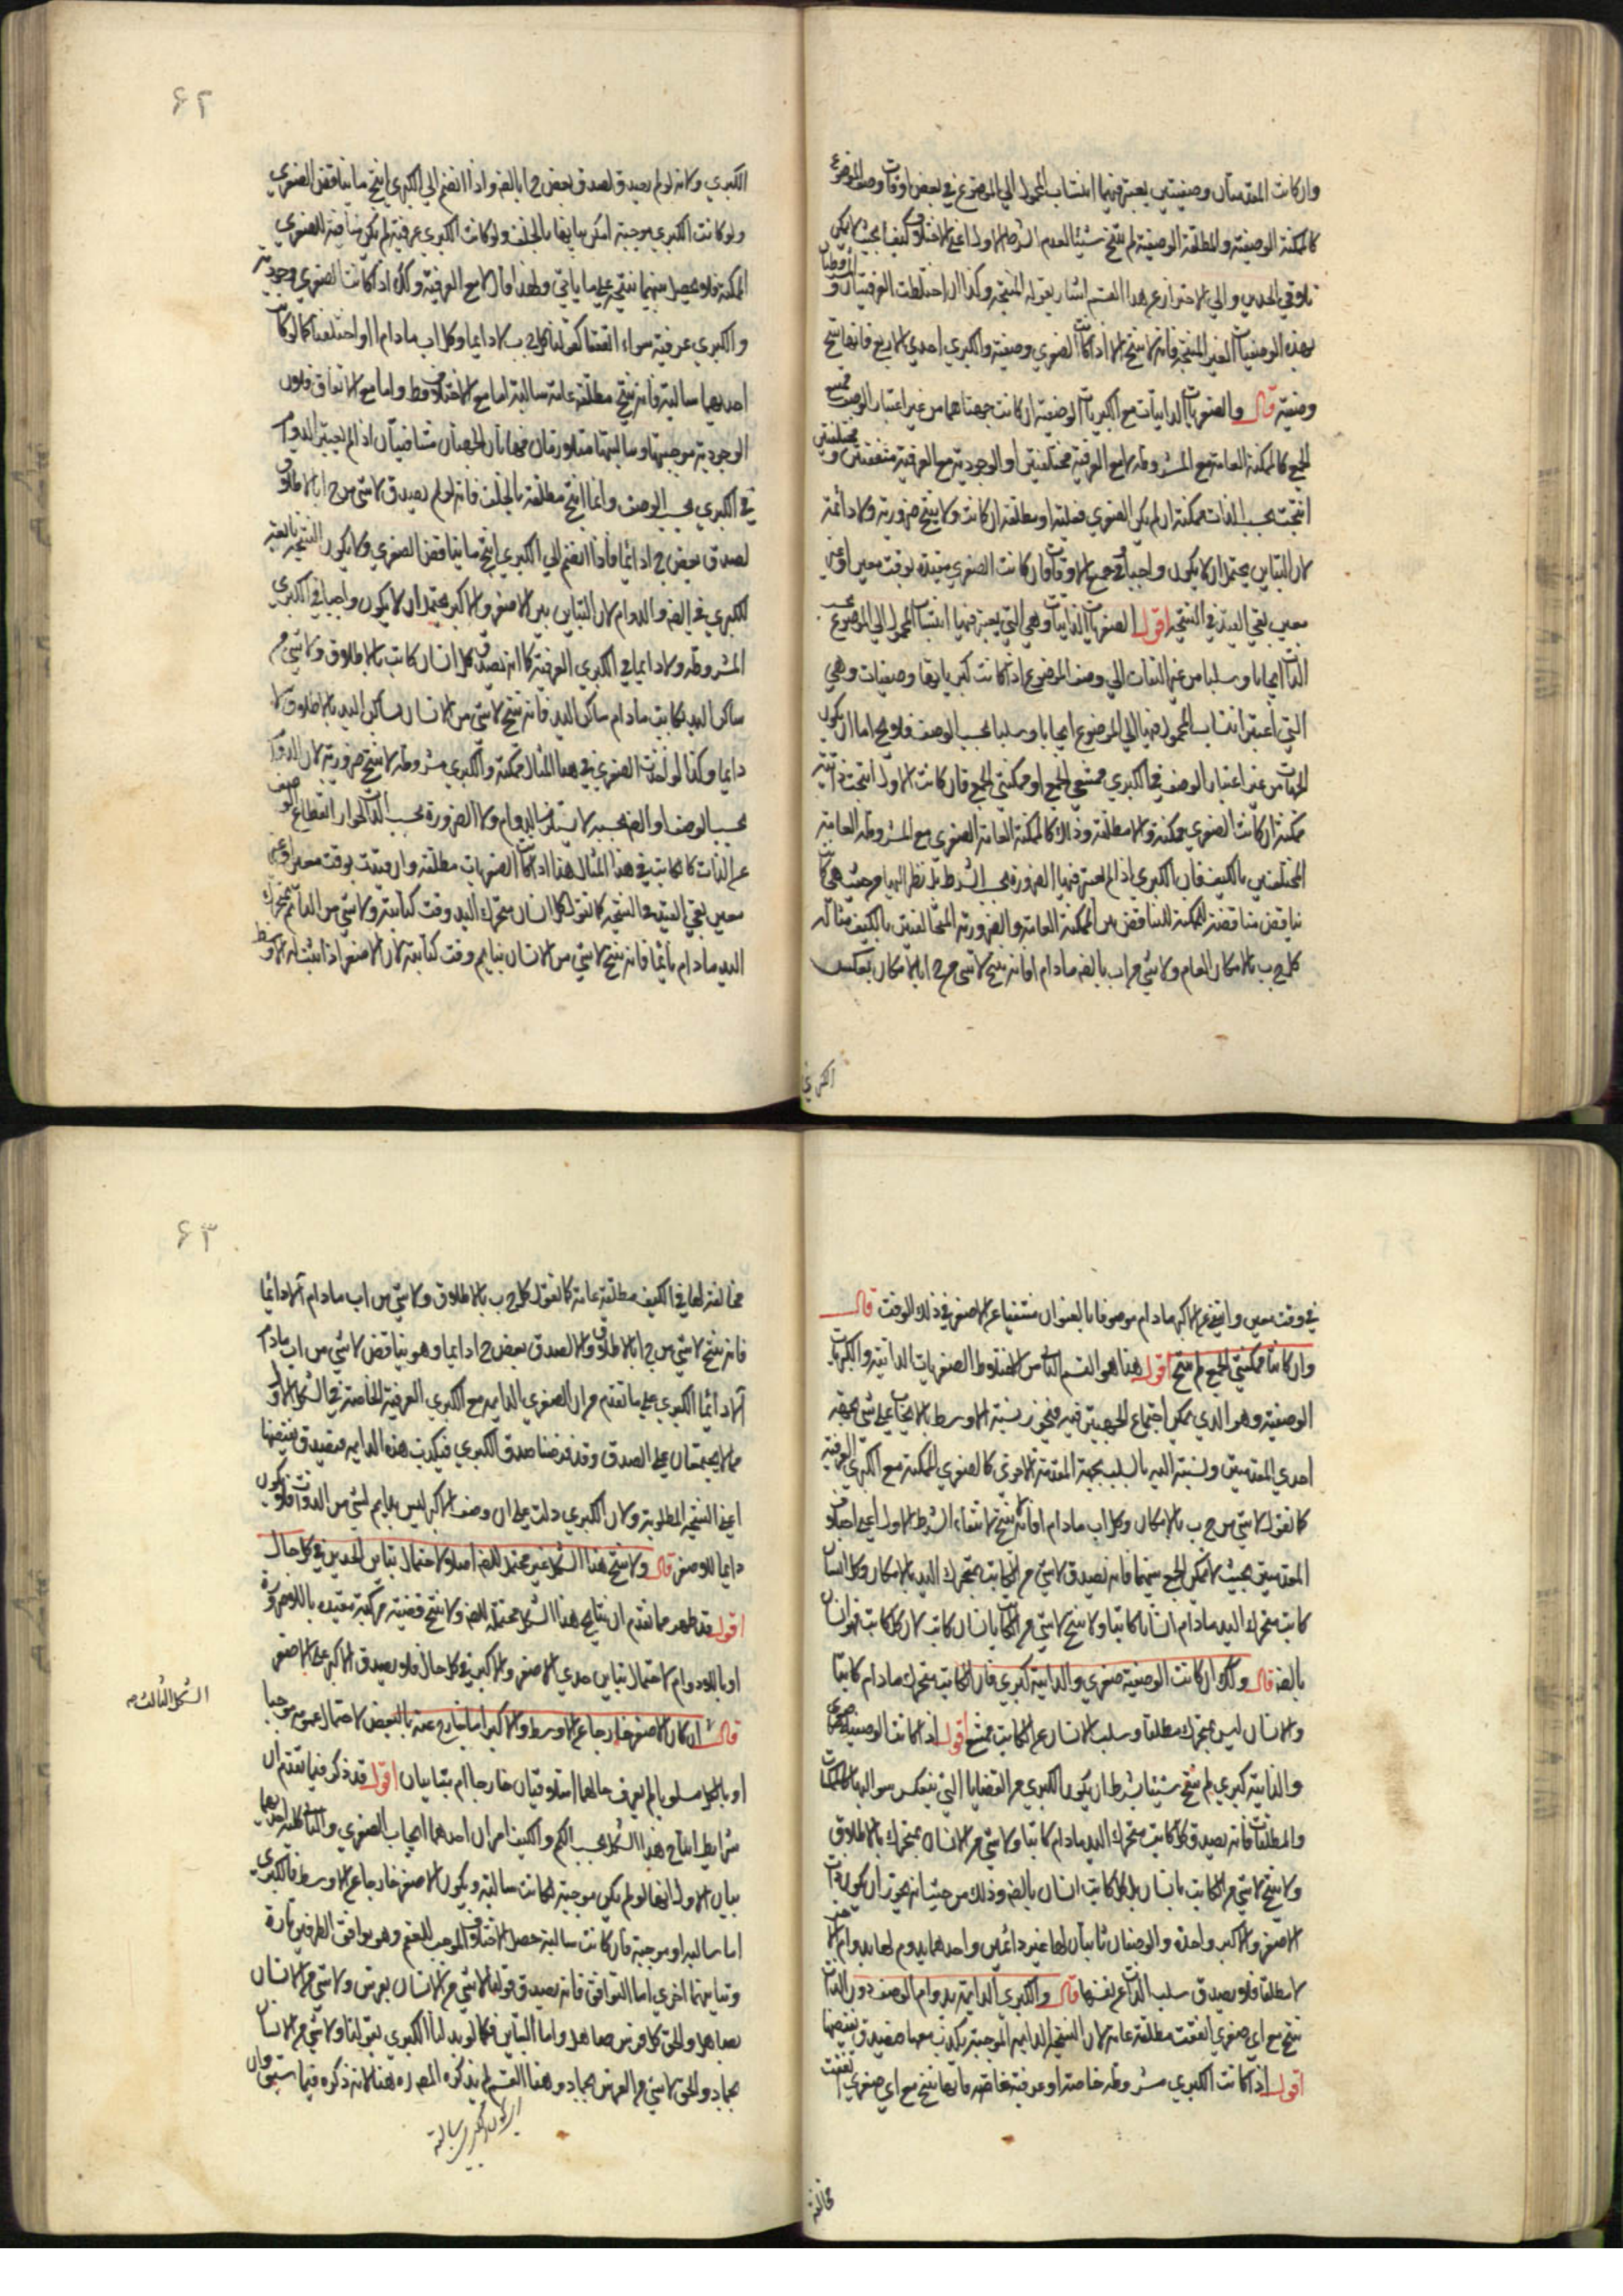 وان كانت المقدمتان وصفيتين يعتبر فيهما انتساب المحمول الي الموضوع في بعض اوقات وصف الموضوع
كالممكنة الوصفية والمطلقة الوصفية لم ينتج شيئا لعدم الشرط الاول اعني الاختلاف كيف بحيث لا يمكن
تلاقي الحدين والي الاحتراز عن هذا القسم اشار بقوله المنتجة وكذا ان اختلطت العرفيتان و المشروطتان
بهذه الوصفيات الغير المنتجة فانه لا ينتج الا اذا كانت الصغري وصفية والكبري احدي الاربع فانها تنتج
وصفية قال والصغريات الذاتيات مع الكبريات الوصفية ان كانت جهتاهما من غير اعتبار الوصف ممتنع
الجمع كالممكنة العامة مع المشروطة لا مع العرفية مختلفتين او الوجودية مع العرفية متفقتين و مختلفتين
انتجت بحسب الذات ممكنة ان لم يكن الصغري فعلية او مطلقة ان كانت ولا ينتج ضرورية ولا دائمة
لان التباين يحتمل ان لا يكون واجبا في جميع الاوقات وان كانت الصغري مقيدة بوقت معين او غير
معين بقي القيد في النتيجة اقول الصغريات الذاتيات وهي التي يعتبر فيها انتساب المحمول الي الموضوع بحسب
الذات ايجابا و سلبا من غير التفات الي وصف الموضوع اذا كانت كبرياتها وصفيات وهي
التي اعتبر انتساب المحمول فيها الي الموضوع ايجابا وسلبا بحسب الوصف فلا يخ اما ان يكون
الجهتان من غير اعتبار الوصف في الكبري ممتنعي الجمع او ممكنتي الجمع فان كانت الاول انتجت ذاتية
ممكنة ان كانت الصغري ممكنة والا مطلقة وذلك كالممكنة العامة الصغري مع المشروطة العامة
المختلفتين بالكيف فان الكبري اذا لم يعتبر فيها الضرورة بحسب الشرط بل نظر اليها من حيث هي كانت
يناقض مناقضة الممكنة للتناقض بين الممكنة العامة والضرورية المتخالفتين بالكيف مثاله
كل ج ب بالامكان العام ولا شي من ا ب بالضه ما دام ا فانه ينتج لا شي من ج ا بالامكان بعكس
الكبري
۶۲
الكبري ولانه لو لم يصدق لصدق بعض ج ا بالضه واذا انضم الي الكبري انتج ما يناقض الصغري
ولو كانت الكبري موجبة امكن بيانها بالخلف ولو كانت الكبري عرفية لم يكن منافية للصغري
الممكنة فلا يحصل منهما نتيجة علي ما ياتي ولهذا قال لا مع العرفية وكذا اذا كانت الصغري وجودية
والكبري عرفية سواء اتفقتا كقولنا كل ج ب لا دايما وكل ا ب ما دام ا او اختلفتا كما لو كانت
احديهما سالبة فانه ينتج مطلقة عامة سالبة اما مع الاختلاف فظ واما مع الاتفاق فلان
الوجودية موجبتها و سالبتها متلازمتان فهاتان الجهتان متنافيتان اذا لم يعتبر الدوام
في الكبري بحسب الوصف وانما انتج مطلقة بالخلف فانه لو لم يصدق لا شي من ج ا بالاطلاق
لصدق بعض ج ا دائما فاذا انضم الي الكبري انتج ما يناقض الصغري ولا يكون النتيجة تابعة
للكبري في الضه والدوام لان التباين بين الاصغر والاكبر يحتمل ان لا يكون واجبا في الكبري
المشروطة ولا دايما في الكبري العرفية كما انه يصدق كل انسان كاتب بالاطلاق ولا شي من
ساكن اليد بكاتب ما دام ساكن اليد فانه ينتج لا شي من الانسان بساكن اليد بالاطلاق لا
دايما وكذا لو اخذت الصغري في هذا المثال ممكنة والكبري مشروطة لا ينتج ضرورية لان الدوام
بحسب الوصف او الضه بحسبه لا يستلزم الدوام ولا الضرورة بحسب الذات لجواز انقطاع الوصف
عن الذات كالكاتب في هذا المثال هذا اذا كانت الصغريات مطلقة وان قيدت بوقت معين او غير
معين بقي القيد في النتيجة كما نقول كل انسان متحرك اليد وقت كتابته ولا شي من النائم بمتحرك
اليد ما دام نائما فانه ينتج لا شي من الانسان بنايم وقت كتابته لان الاصغر اذا ثبت له الاوسط
في وقت معين وانتفي عن الاكبر ما دام موصوفا بالعنوان منتفيا عن الاصغر في ذلك الوقت قال
وان كانتا ممكنتي الجمع لم ينتج اقول هذا هو القسم الثاني من اختلاط الصغريات الذاتية والكبريات
الوصفية وهو الذي يمكن اجتماع الجهتين فيه فيجوز نسبة الاوسط بالايجاب علي شي بجهة
احدي المقدمتين ونسبته اليه بالسلب بجهة المقدمة الاخري كالصغري الممكنة مع الكبري العرفية
كما نقول لا شي من ج ب بالامكان وكل ا ب ما دام ا فانه لا ينتج لانتفاء الشرط الاول اعني اختلاف
المقدمتين بحيث لا يمكن الجمع بينهما فانه يصدق لا شي من الكاتب بمتحرك اليد بالامكان وكل انسان
كاتب متحرك اليد ما دام انسانا كاتبا ولا ينتج لا شي من الكاتب بانسان كاتب لان كل كاتب فهو انسان
بالضه قال وكذا ان كانت الوصفية صغري والذاتية كبري فان الكاتب متحرك ما دام كاتبا
والانسان ليس بمتحرك مطلقا وسلب الانسان عن الكاتب ممتنع اقول اذا كانت الوصفية صغري
والذاتية كبري لم ينتج شيئا بشرط ان يكون الكبري من القضايا التي ينعكس سوالبها كالممكنات
والمطلقات فانه يصدق كل كاتب متحرك اليد ما دام كاتبا ولا شي من الانسان بمتحرك بالاطلاق
ولا ينتج لا شي من الكاتب بانسان بل كل كاتب انسان بالضه وذلك من حيث انه يجوز ان يكون ذات
الاصغر والاكبر واحدة والوصفان ثابتان لها غير دائمين واحدهما يدوم لها بدوام الاخر
لا مطلقا فلا يصدق سلب الذات عن نفسها قال والكبري الدايمة بدوام الوصف دون الذات
ينتج مع اي صغري اتفقت مطلقة عامة لان النتيجة الدايمة الموجبة يكذب معها فيصدق نقيضها
اقول اذا كانت الكبري مشروطة خاصة او عرفية خاصة فانها تنتج مع اي صغري اتفقت
مخالفة
۶۳
مخالفة لها في الكيف مطلقة عامة كما نقول كل ج ب بالاطلاق ولا شي من ا ب ما دام ا لا دائما
فانه ينتج لا شي من ج ا بالاطلاق والا لصدق بعض ج ا دايما وهو يناقض لا شي من ا ب ما دام
ا لا دائما الكبري علي ما تقدم من ان الصغري الدايمة مع الكبري العرفية الخاصة في الشكل الاول
مما لا يجتمعان علي الصدق وقد فرضنا صدق الكبري فيكذب هذه الدايمة فيصدق نقيضها
اعني النتيجة المطلوبة ولان الكبري دلت علي ان وصف الاكبر ليس بدايم لشي من الذوات فلا يكون
دايما للاصغر قال ولا ينتج هذا الشكل غير محتمل للضه اصلا لاحتمال تباين الحدين في كل حال
اقول قد ظهر مما تقدم ان نتايج هذا الشكل محتملة للضه ولا ينتج قضية مركبة مقيدة باللاضرورة
او باللادوام لاحتمال تباين حدي الاصغر والاكبر في كل حال فلا يصدق الاكبر علي الاصغر
الشكل الثالث
قال ان كان الاصغر خارجا عن الاوسط والاكبر اما خارج عنه بالبعض لاحتمال عمومه موجبا
او بالكل مسلوبا لم يعرف حالهما اهما متلاقيان خارجا ام متباينان اقول قد ذكر فيما تقدم ان
شرايط انتاج هذا الشكل بحسب الكم والكيف امران احدهما ايجاب الصغري والثاني كلية احديهما
بيان الاول انها لو لم يكن موجبة لكانت سالبة ويكون الاصغر خارجا عن الاوسط فالكبري
اما سالبه او موجبة فان كانت سالبة حصل الاختلاف الموجب للعقم وهو توافق الطرفين تارة
وتباينهما اخري اما التوافق فانه يصدق قولنا لا شي من الانسان بفرس ولا شي من الانسان
بصاهل والحق كل فرس صاهل واما التباين فكما لو بدلنا الكبري بقولنا ولا شي من الانسان
بجماد والحق لا شي من الفرس بجماد وهذا القسم لم يذكره المصه هنا لانه ذكره فيما سبق وان